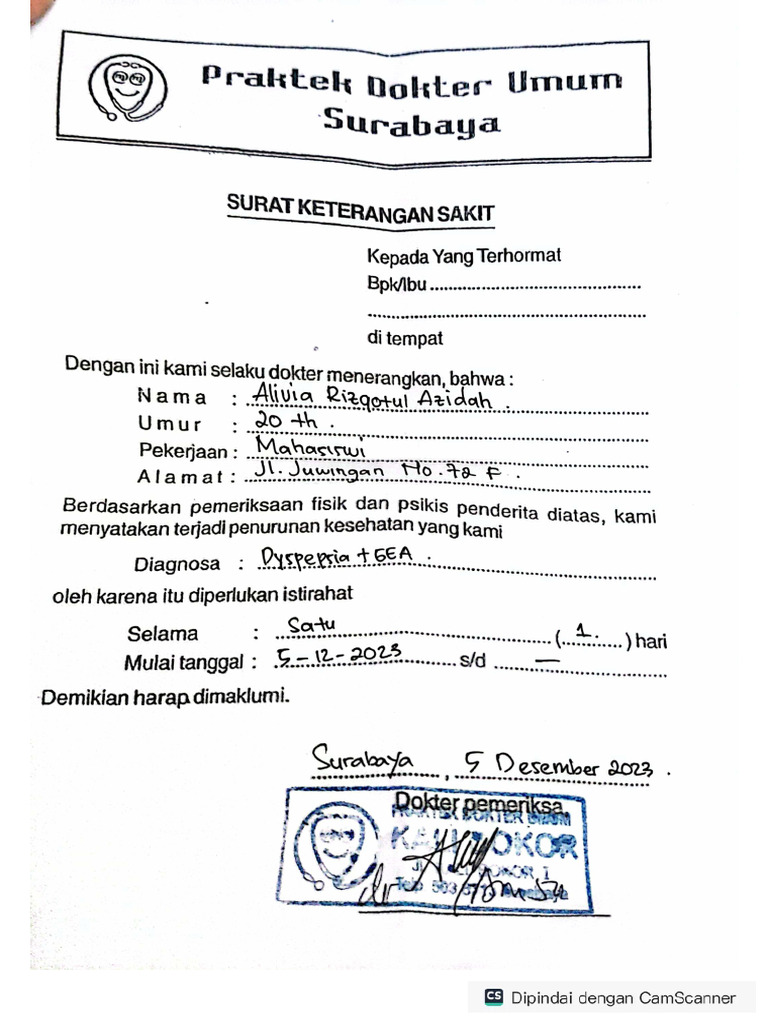 Praktek Dokter Umum
Surabaya
SURAT KETERANGAN SAKIT
Kepada Yang Terhormat
Bpk/Ibu ..........
..........
di tempat
Dengan ini kami selaku dokter menerangkan, bahwa :
Nama : Alivia Rizqotul Azidah .
Umur : 20 th .
Pekerjaan : Mahasiswi
Alamat : Jl. Juwingan No. 72 F .
Berdasarkan pemeriksaan fisik dan psikis penderita diatas, kami
menyatakan terjadi penurunan kesehatan yang kami
Diagnosa : Dyspepsia + GEA .
oleh karena itu diperlukan istirahat
Selama : Satu (1.) hari
Mulai tanggal : 5-12-2023 s/d —
Demikian harap dimaklumi.
Surabaya, 5 Desember 2023 .
Dokter pemeriksa
PRAKTEK DOKTER UMUM
dr
CS Dipindai dengan CamScanner